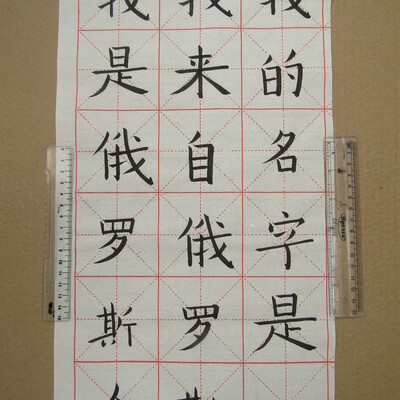 我的名字是
我来自俄罗斯
我是俄罗斯人